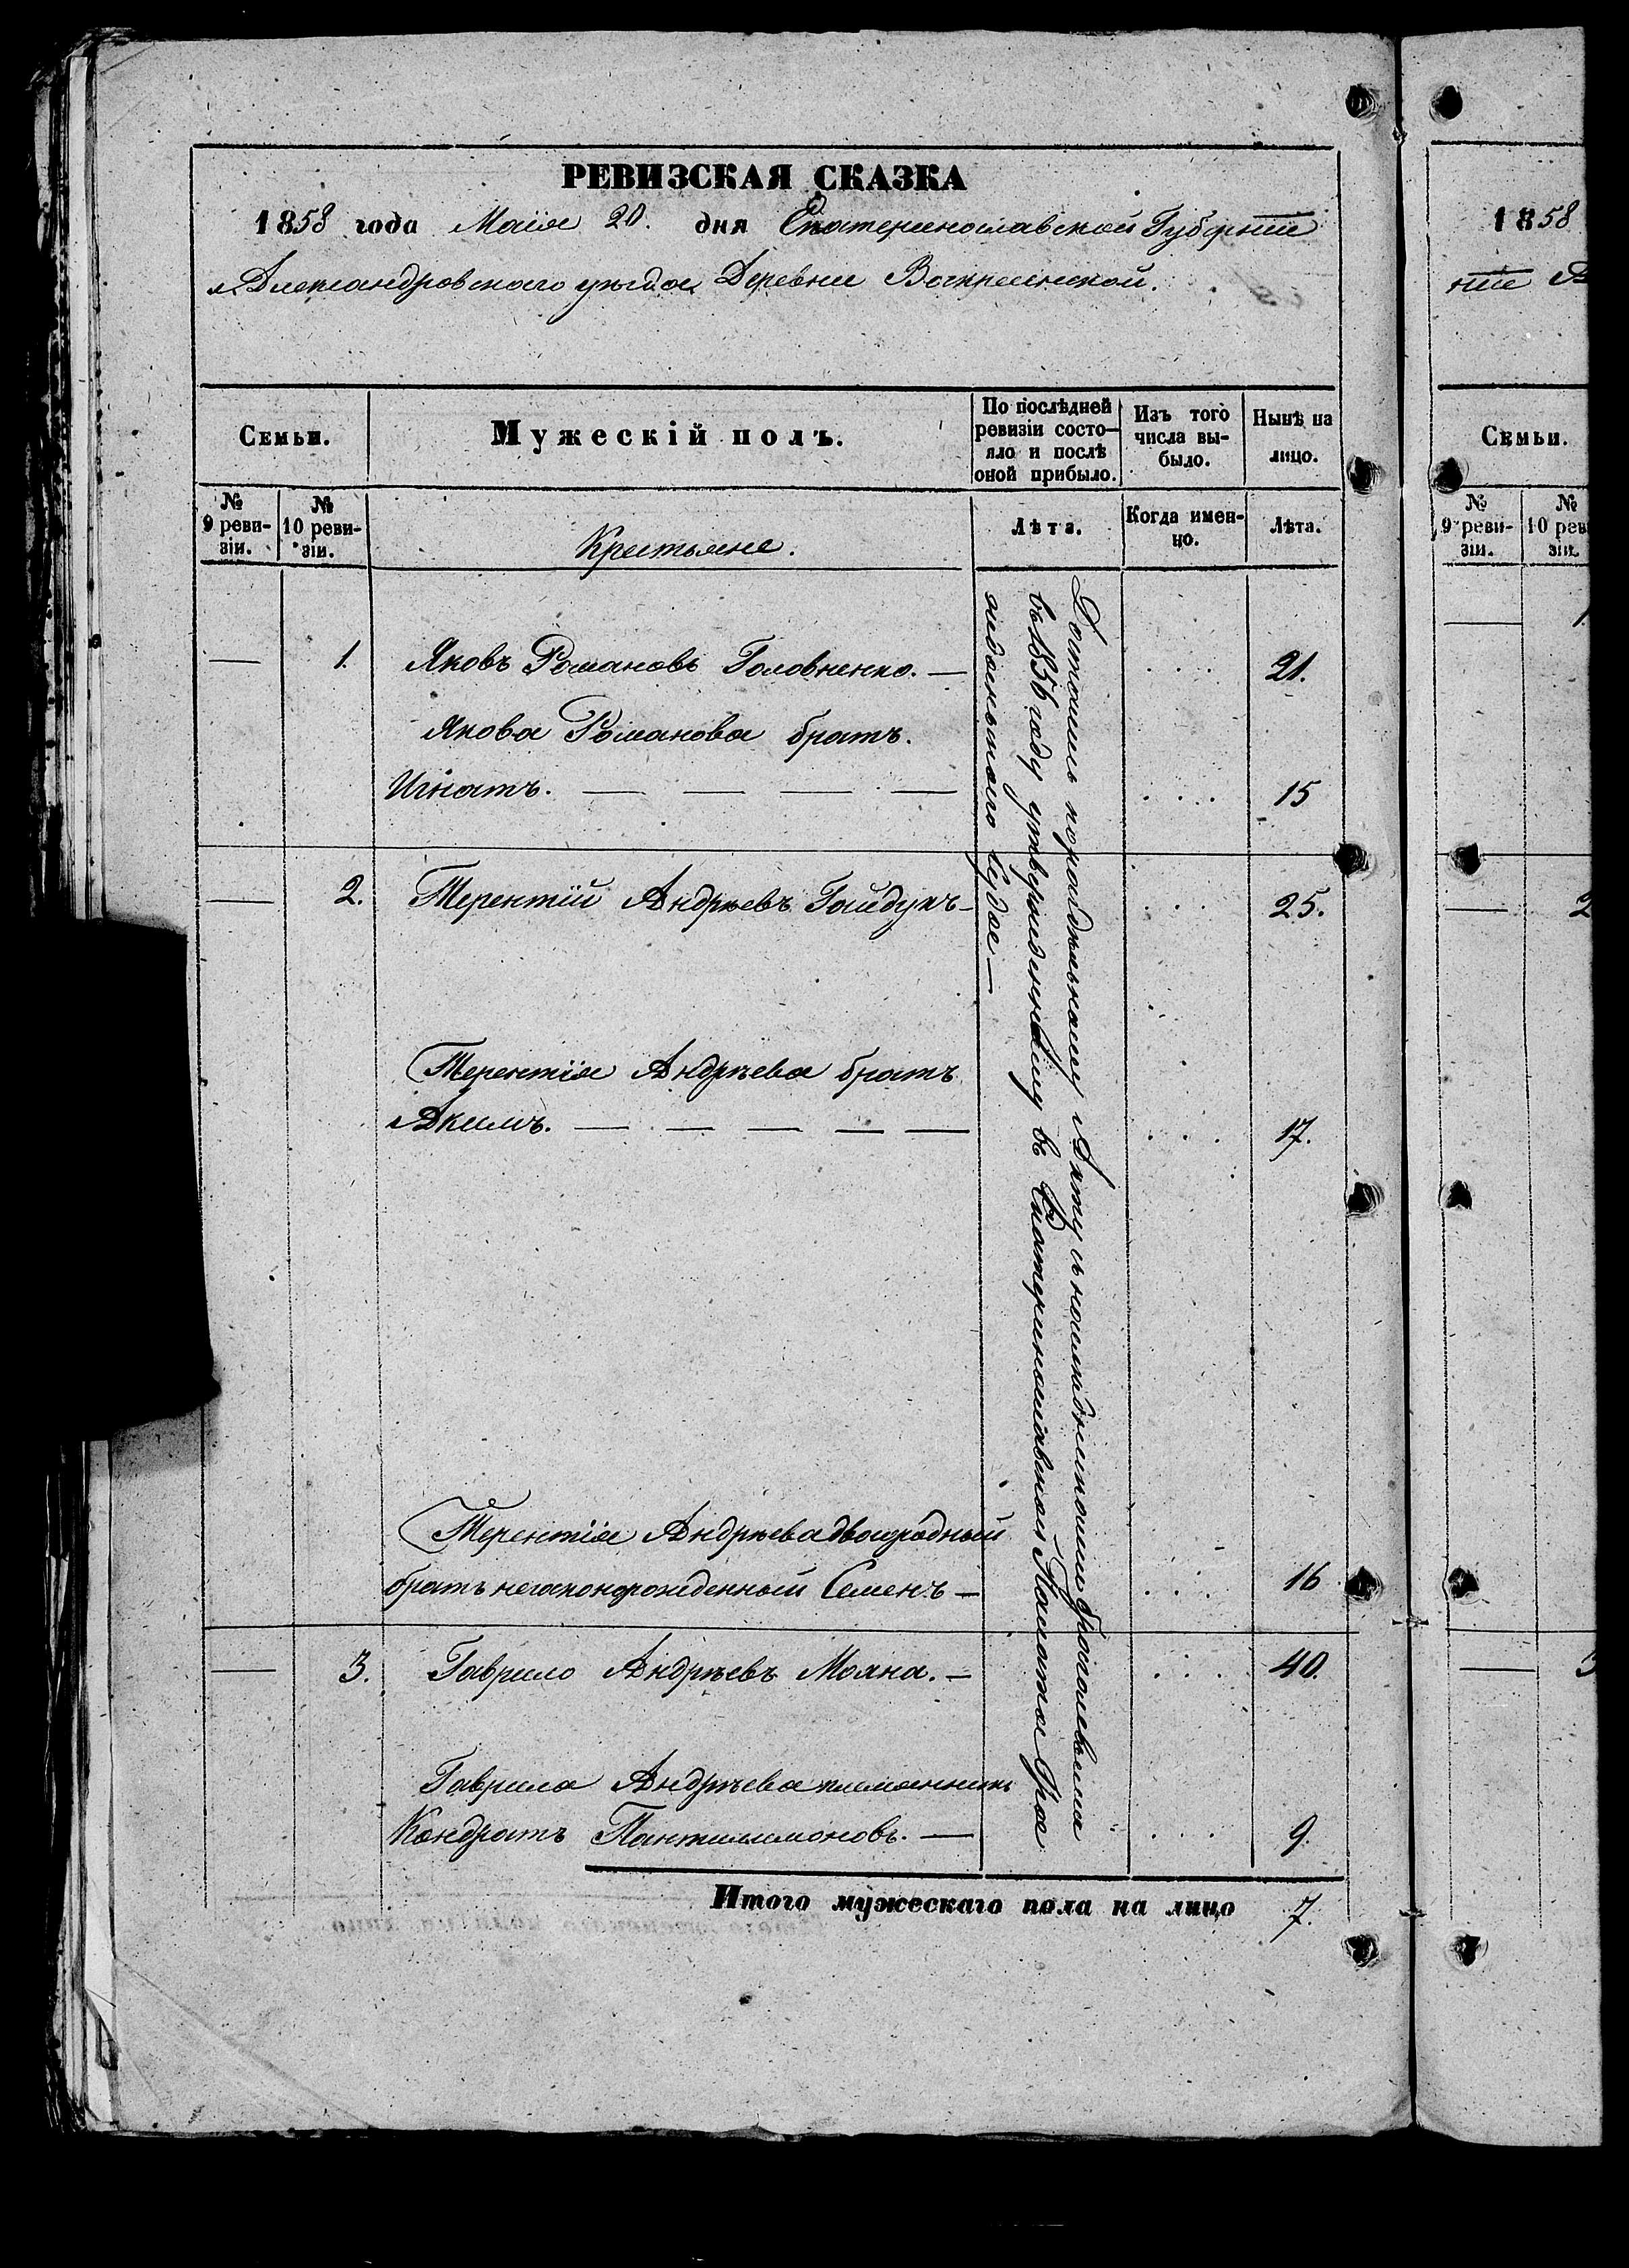 РЕВИЗСКАЯ СКАЗКА
1858 года Маія 20. дня Екатеринославской Губерніи
Александровскаго уѣзда, Деревни Воскресенской.
Семьи.
Мужескій полъ.
По послѣдней ревизіи состо-
яло и послѣ
оной прибыло.
Изъ того
числа вы-
было.
Нынѣ на
лицо.
№
9 реви-
зіи.
№
10 реви-
зіи.
Крестьяне.
Лѣта.
Когда имен-
но.
Лѣта.
— 1. Яковъ Романовъ Головненко. — . . . 21.
Якова Романова братъ.
Игнатъ. — — — — . . . . 15
— 2. Терентій Андрѣевъ Гайдукъ — . . . 25.
Терентія Андрѣева братъ
Акимъ. — — — — — . . . . 17.
Терентія Андрѣева двоюродный
братъ незаконорожденный Семенъ — . . . . 16
— 3. Гаврило Андрѣевъ Мояка. — . . . . 40.
Гаврила Андрѣева племянникъ
Кондратъ Пантилимоновъ. — . . . . 9.
Достались по раздѣльному Акту съ
въ 1856 году утвержденному въ Екатеринославской Палатѣ Гра
жданскаго Суда —
Итого мужескаго пола на лицо 7.
1858
ніи А
Семьи.
№
9 реви-
зіи.
№
10 реви
зіи.
— 1
— 2
— 3